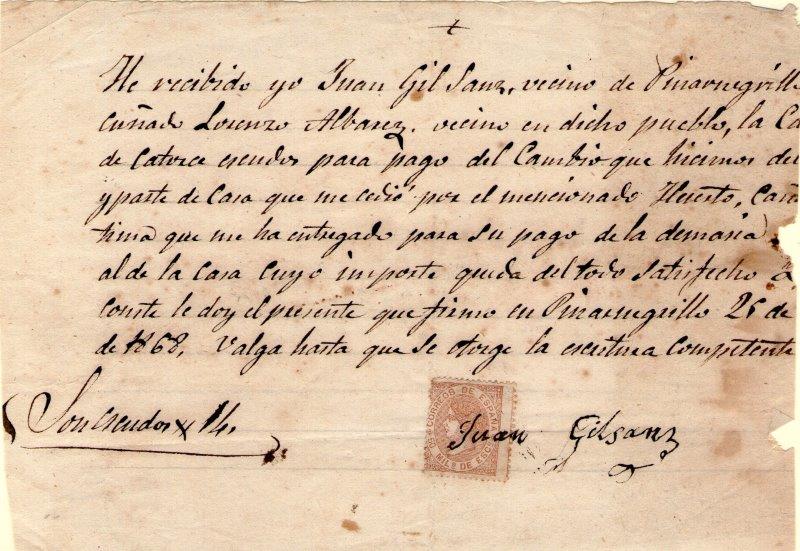 +
He recibido yo Juan Gil Sanz, vecino de Pinarnegrillo
cuñado Lorenzo Albarez. vecino en dicho pueblo, la Ca
de Catorce escudos para pago del Cambio que hicimos de
y parte de Casa que me cedió por el mencionado Huerto, Can
tima que me ha entregado para su pago de la demasía
al de la Casa cuyo importe queda del todo satisfecho
conste le doy el presente que firmo en Pinarnegrillo 26 de
de 1868, Valga hasta que se otorge la escritura competente
Son escudos 14.
CORREOS DE ESPAÑA
MILS DE ESCO
Juan Gilsanz